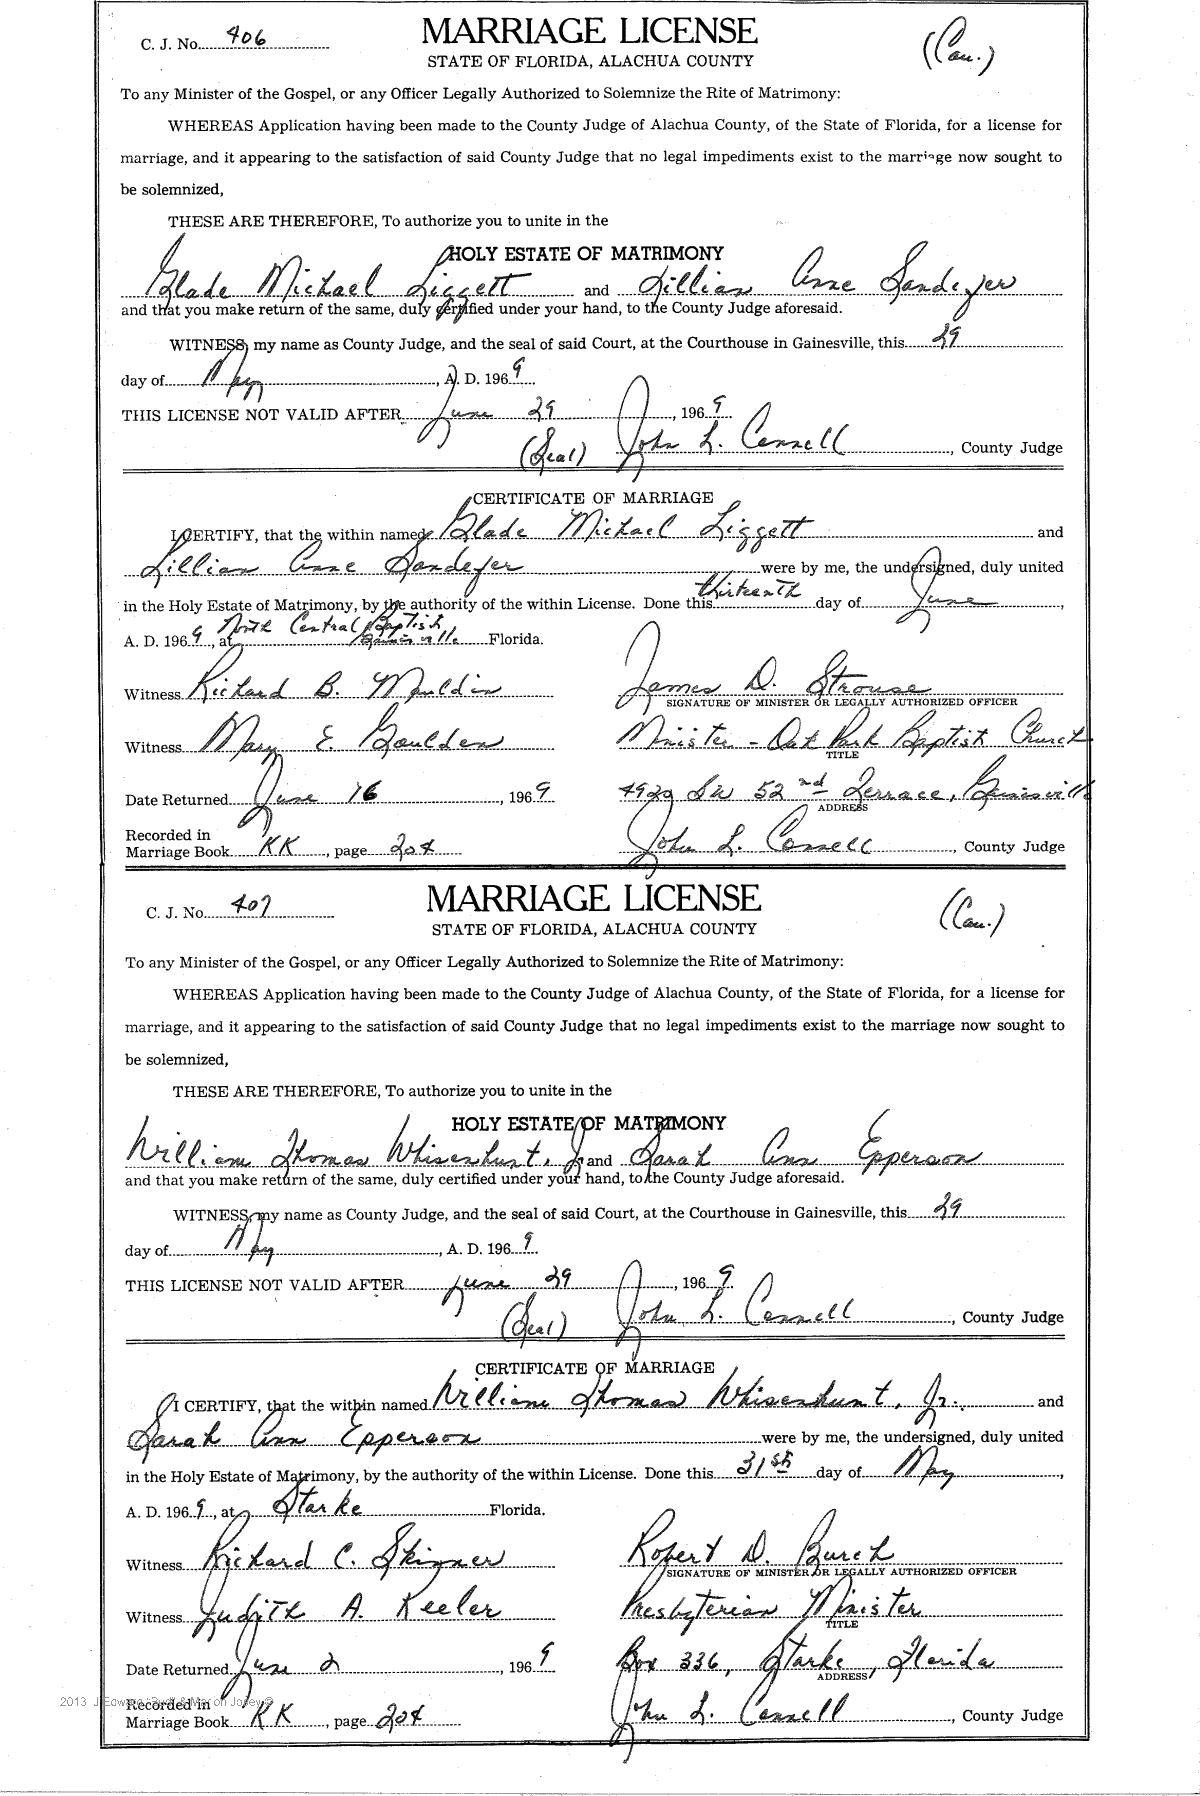 C. J. No. 406
MARRIAGE LICENSE
(Cau.)
STATE OF FLORIDA, ALACHUA COUNTY
To any Minister of the Gospel, or any Officer Legally Authorized to Solemnize the Rite of Matrimony:
WHEREAS Application having been made to the County Judge of Alachua County, of the State of Florida, for a license for
marriage, and it appearing to the satisfaction of said County Judge that no legal impediments exist to the marriage now sought to
be solemnized,
THESE ARE THEREFORE, To authorize you to unite in the
HOLY ESTATE OF MATRIMONY
Glade Michael Liggett and Lillian Anne Sandefer
and that you make return of the same, duly certified under your hand, to the County Judge aforesaid.
WITNESS, my name as County Judge, and the seal of said Court, at the Courthouse in Gainesville, this 29
day of May, A. D. 1969
THIS LICENSE NOT VALID AFTER June 29, 1969
(Seal) John L. Connell, County Judge
CERTIFICATE OF MARRIAGE
I CERTIFY, that the within named Glade Michael Liggett and
Lillian Anne Sandefer were by me, the undersigned, duly united
in the Holy Estate of Matrimony, by the authority of the within License. Done this thirteenth day of June,
A. D. 1969, at North Central Baptist Gainesville Florida.
Witness Richard B. Mauldin James D. Strouse
SIGNATURE OF MINISTER OR LEGALLY AUTHORIZED OFFICER
Witness Mary E. Goulden Minister - Oak Park Baptist Church
TITLE
Date Returned June 16, 1969 4929 SW 52nd Terrace, Gainesville
ADDRESS
Recorded in
Marriage Book KK, page 204 John L. Connell, County Judge
C. J. No. 407
MARRIAGE LICENSE
(Cau.)
STATE OF FLORIDA, ALACHUA COUNTY
To any Minister of the Gospel, or any Officer Legally Authorized to Solemnize the Rite of Matrimony:
WHEREAS Application having been made to the County Judge of Alachua County, of the State of Florida, for a license for
marriage, and it appearing to the satisfaction of said County Judge that no legal impediments exist to the marriage now sought to
be solemnized,
THESE ARE THEREFORE, To authorize you to unite in the
HOLY ESTATE OF MATRIMONY
William Thomas Whisenhunt, Jr. and Sarah Ann Epperson
and that you make return of the same, duly certified under your hand, to the County Judge aforesaid.
WITNESS, my name as County Judge, and the seal of said Court, at the Courthouse in Gainesville, this 29
day of May, A. D. 1969
THIS LICENSE NOT VALID AFTER June 29, 1969
(Seal) John L. Connell, County Judge
CERTIFICATE OF MARRIAGE
I CERTIFY, that the within named William Thomas Whisenhunt, Jr. and
Sarah Ann Epperson were by me, the undersigned, duly united
in the Holy Estate of Matrimony, by the authority of the within License. Done this 31st day of May,
A. D. 1969, at Starke Florida.
Witness Richard C. Skinner Robert D. Burch
SIGNATURE OF MINISTER OR LEGALLY AUTHORIZED OFFICER
Witness Judith A. Keeler Presbyterian Minister
TITLE
Date Returned June 2, 1969 Box 336, Starke, Florida
ADDRESS
Recorded in
Marriage Book KK, page 204 John L. Connell, County Judge
2013